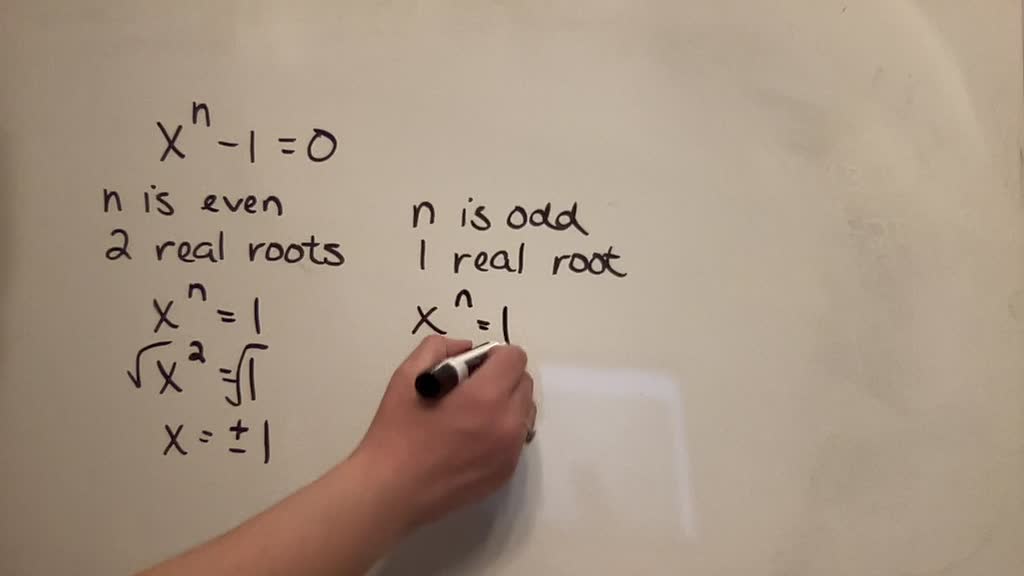 xⁿ - 1 = 0
n is even
2 real roots
xⁿ = 1
√x² = √1
x = ± 1
n is odd
1 real root
xⁿ = 1